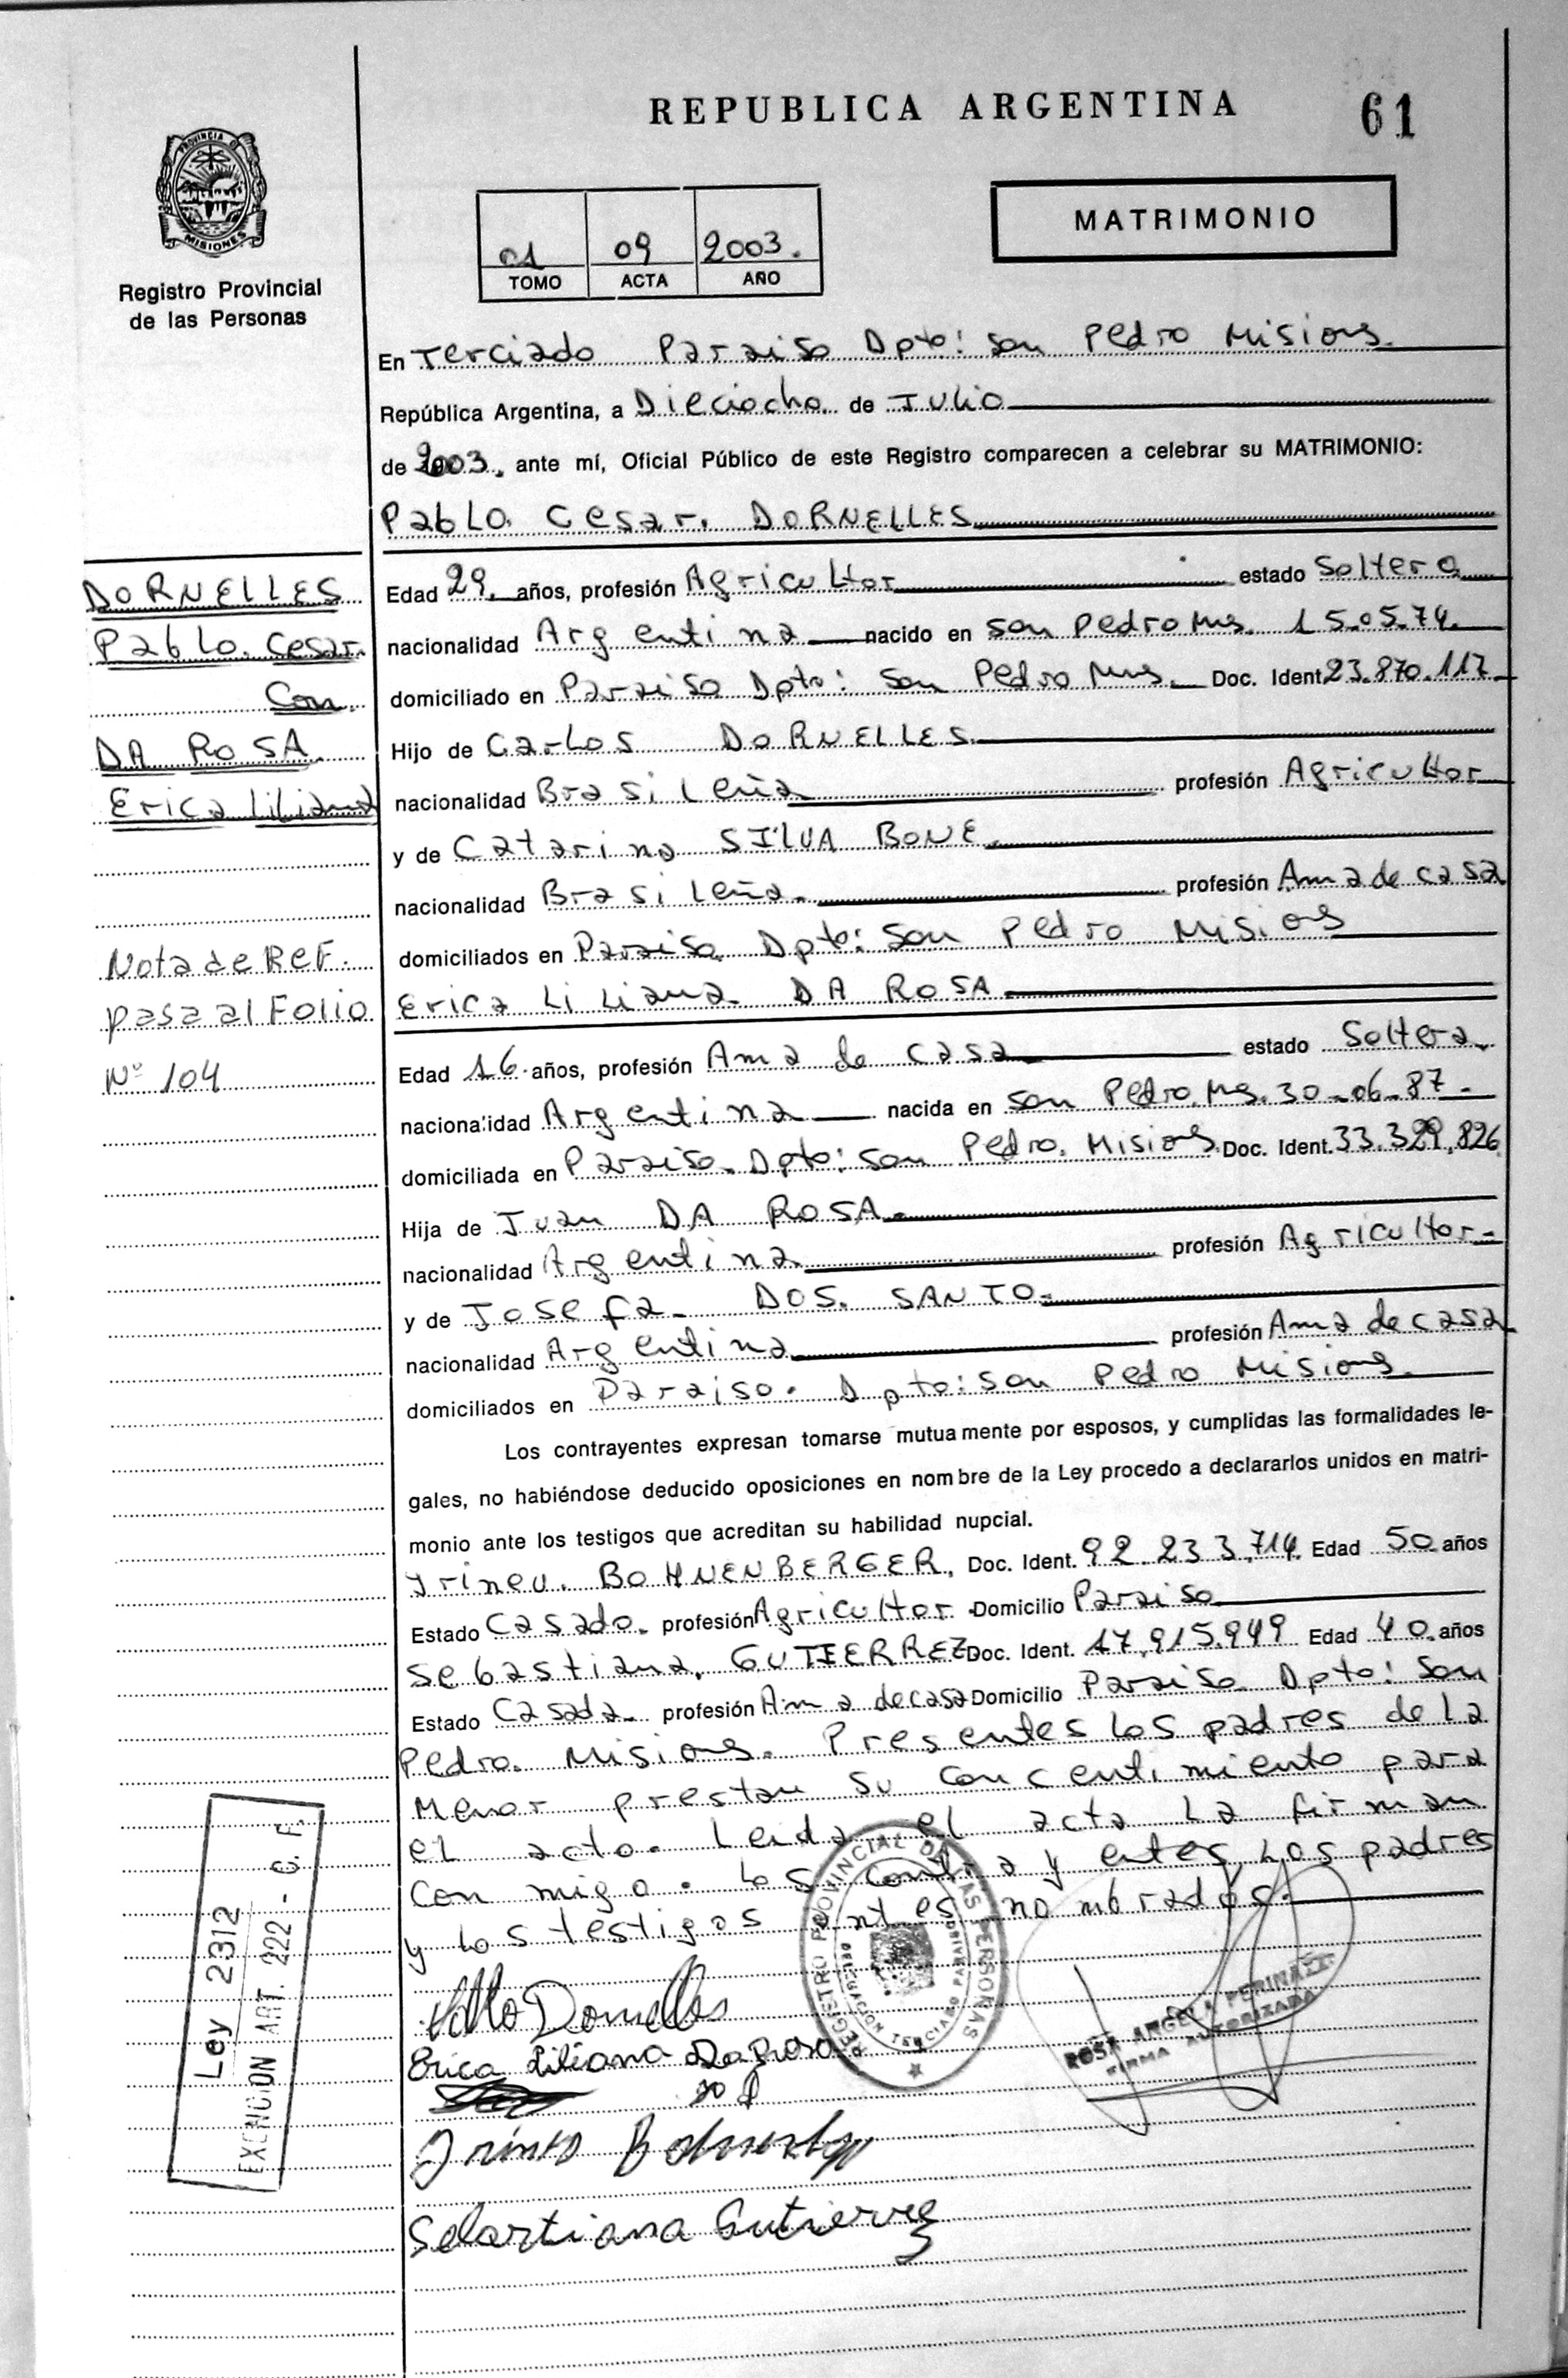 REPUBLICA ARGENTINA
61
PROVINCIA D
MISIONES
Registro Provincial
de las Personas
01 09 2003.
TOMO ACTA AÑO
MATRIMONIO
En Terciado Paraiso Dpto: San Pedro Misions.
República Argentina, a Dieciocho de Julio
de 2003, ante mí, Oficial Público de este Registro comparecen a celebrar su MATRIMONIO:
Pablo. Cesar. DORNELLES
DORNELLES
Pablo. Cesar.
Con.
DA ROSA.
Erica Liliana
Nota de Ref.
pasa al Folio
Nº 104
Edad 29. años, profesión Agricultor estado Soltero
nacionalidad Argentina nacido en San Pedro Mns. 15.05.74.
domiciliado en Paraiso Dpto: San Pedro Mns. Doc. Ident. 23.870.117
Hijo de Carlos DORNELLES.
nacionalidad Brasileña profesión Agricultor
y de Catarina SILVA BONE.
nacionalidad Brasileña. profesión Ama de casa
domiciliados en Paraiso Dpto: San Pedro Misions
Erica Liliana DA ROSA
Edad 16. años, profesión Ama de casa estado Soltera.
nacionalidad Argentina nacida en San Pedro. Mns. 30-06-87-
domiciliada en Paraiso. Dpto: San Pedro. Misions. Doc. Ident. 33.329.826
Hija de Juan DA ROSA.
nacionalidad Argentina profesión Agricultor.
y de Josefa DOS. SANTO.
nacionalidad Argentina profesión Ama de casa
domiciliados en Paraiso. Dpto: San Pedro Misions.
Los contrayentes expresan tomarse mutuamente por esposos, y cumplidas las formalidades le-
gales, no habiéndose deducido oposiciones en nombre de la Ley procedo a declararlos unidos en matri-
monio ante los testigos que acreditan su habilidad nupcial.
Irineu. BOHNENBERGER, Doc. Ident. 92.233.714. Edad 50 años
Estado Casado. profesión Agricultor Domicilio Paraiso
Sebastiana. GUTIERREZ Doc. Ident. 17.915.949 Edad 40 años
Estado Casada. profesión Ama de casa Domicilio Paraiso Dpto: San
Pedro. Misions. Presentes los padres de la
Menor prestan su concentimiento para
el acto. Leida el acta la firman
con migo. los contra y entes los padres
y los testigos antes nombrados.
Ley 2312
EXENCION ART. 222 - C. F.
REGISTRO PROVINCIAL DE LAS PERSONAS
DELEGACION TERCIADO PARAISO
ROSA ANGELA PERINAZZI
FIRMA AUTORIZADA
Pablo Dornelles
Erica Liliana Da Rosa
Sebastiana Gutierrez